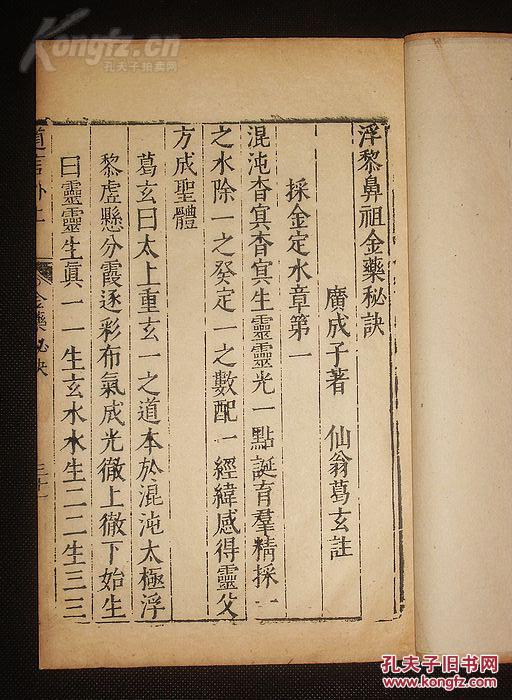 浮黎鼻祖金藥秘訣
廣成子著 仙翁葛玄註
採金定水章第一
混沌杳冥杳冥生靈靈光一點誕育羣精採一
之水除一之癸定一之數配一經緯感得靈父
方成聖體
葛玄曰太上重玄一之道本於混沌太極浮
黎虛懸分霞逐彩布氣成光徹上徹下始生
曰靈靈生眞一一生玄水水生二二生三三
道言外二
金藥秘訣
Kongfz.cn
孔夫子拍卖网
孔夫子旧书网
KONGFZ.COM